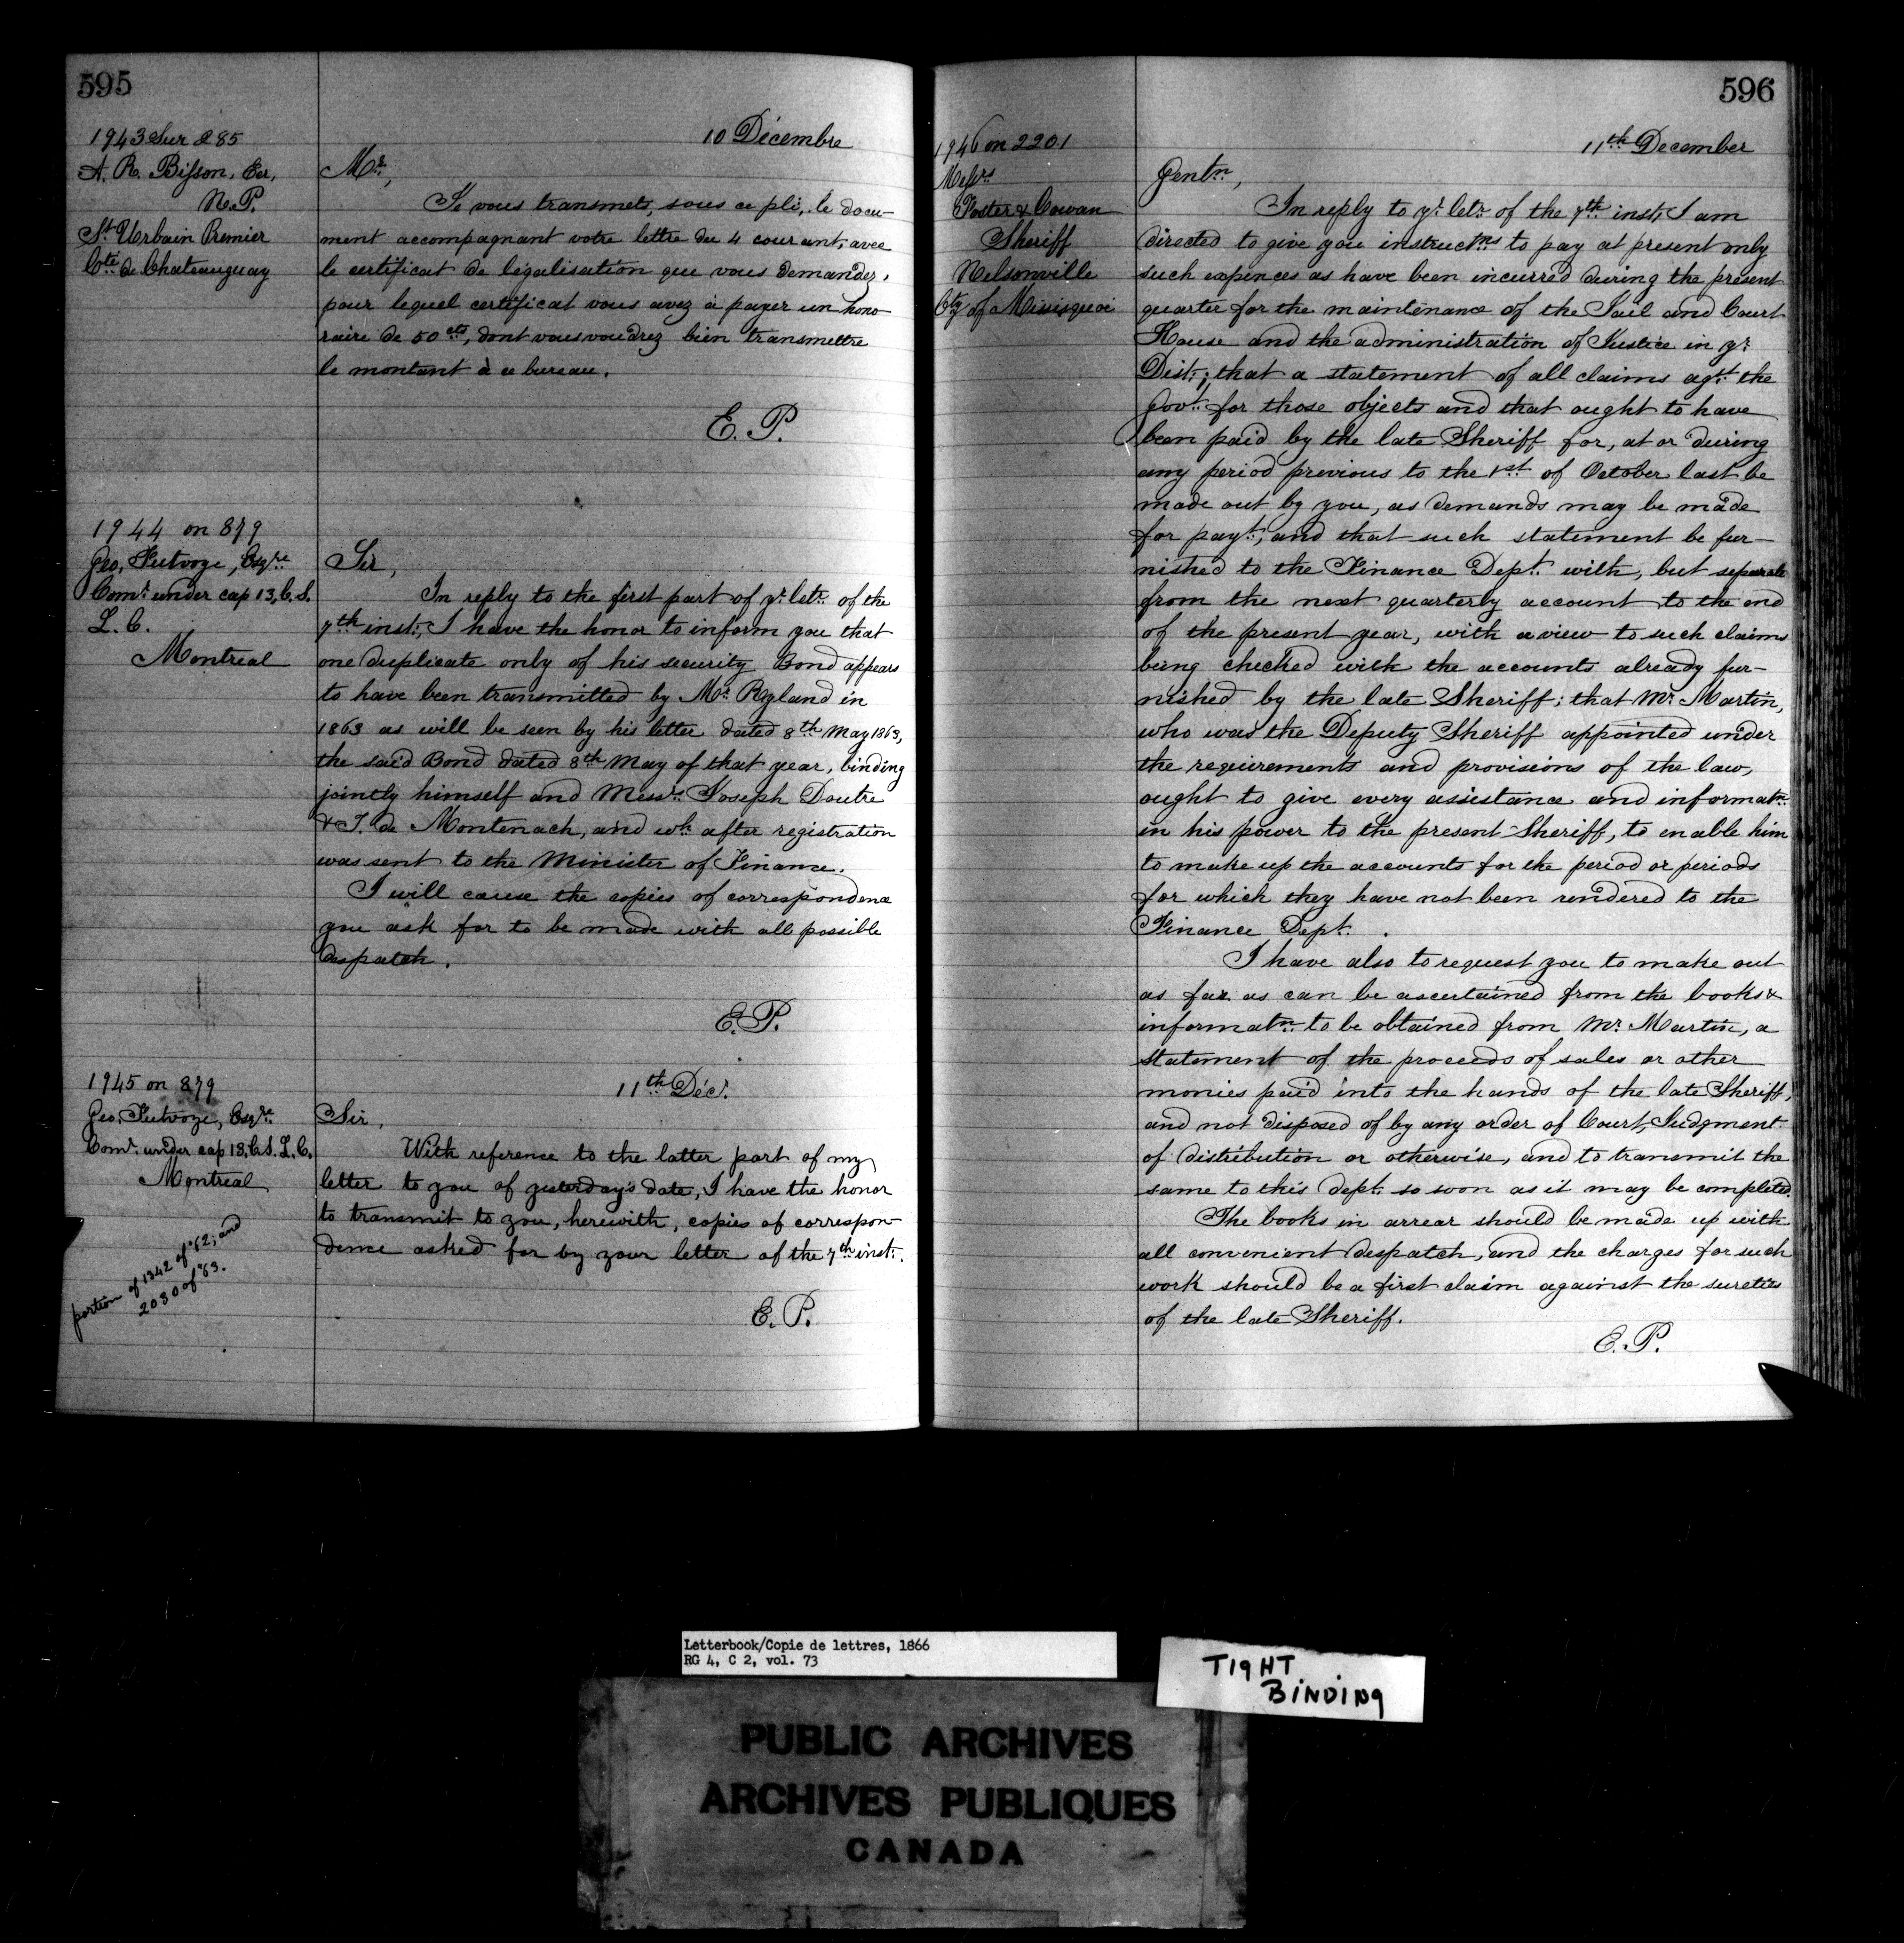 595
1943 Sur 285
A. R. Bisson, Ecr,
N.P.
St Urbain Premier
Cté de Chateauguay
10 Décembre
Mr,
Je vous transmets, sous ce pli, le docu-
ment accompagnant votre lettre du 4 courant, avec
le certificat de légalisation que vous demandez,
pour lequel certificat vous avez à payer un hono
raire de 50 cts, dont vous voudrez bien transmettre
le montant à ce bureau.
E. P.
1944 on 879
Geo. Futvoye, Esqre
Comr under cap 13, C. S.
L. C.
Montreal
Sir,
In reply to the first part of yr letr of the
7th inst:, I have the honor to inform you that
one duplicate only of his security Bond appears
to have been transmitted by Mr Ryland in
1863 as will be seen by his letter dated 8th May 1863,
the said Bond dated 8th May of that year, binding
jointly himself and Messrs Joseph Doutre
& T. de Montenach, and wh after registration
was sent to the Minister of Finance.
I will cause the copies of correspondence
you ask for to be made with all possible
despatch.
E. P.
1945 on 879
Geo. Futvoye, Esqre
Comr under cap 13, C. S. L. C.
Montreal
portion of 1342 of '62; and
2030 of '63.
11th Décr
Sir,
With reference to the latter part of my
letter to you of yesterday's date, I have the honor
to transmit to you, herewith, copies of correspon-
dence asked for by your letter of the 7th inst:.
E. P.
596
1946 on 2201
Messrs
Foster & Cowan
Sheriff
Nelsonville
Cty of Missisquoi
11th December
Gentn,
In reply to yr letr of the 7th inst, I am
directed to give you instructns to pay at present only
such expences as have been incurred during the present
quarter for the maintenance of the Jail and Court
House and the administration of Justice in yr
Dist:; that a statement of all claims agst the
Govt for those objects and that ought to have
been paid by the late Sheriff for, at or during
any period previous to the 1st of October last be
made out by you, as demands may be made
for payt, and that such statement be fur-
nished to the Finance Dept with, but separate
from the next quarterly account to the end
of the present year, with a view to such claims
being checked with the accounts already fur-
nished by the late Sheriff; that Mr Martin,
who was the Deputy Sheriff appointed under
the requirements and provisions of the law,
ought to give every assistance and informatn
in his power to the present Sheriff, to enable him
to make up the accounts for the period or periods
for which they have not been rendered to the
Finance Dept.
I have also to request you to make out
as far as can be ascertained from the books &
informatn to be obtained from Mr Martin, a
statement of the proceeds of sales or other
monies paid into the hands of the late Sheriff,
and not disposed of by any order of Court, Judgment
of distribution or otherwise, and to transmit the
same to this Dept so soon as it may be completed.
The books in arrear should be made up with
all convenient despatch, and the charges for such
work should be a first claim against the sureties
of the late Sheriff.
E. P.
Letterbook/Copie de lettres, 1866
RG 4, C 2, vol. 73
TIGHT
BINDING
PUBLIC ARCHIVES
ARCHIVES PUBLIQUES
CANADA